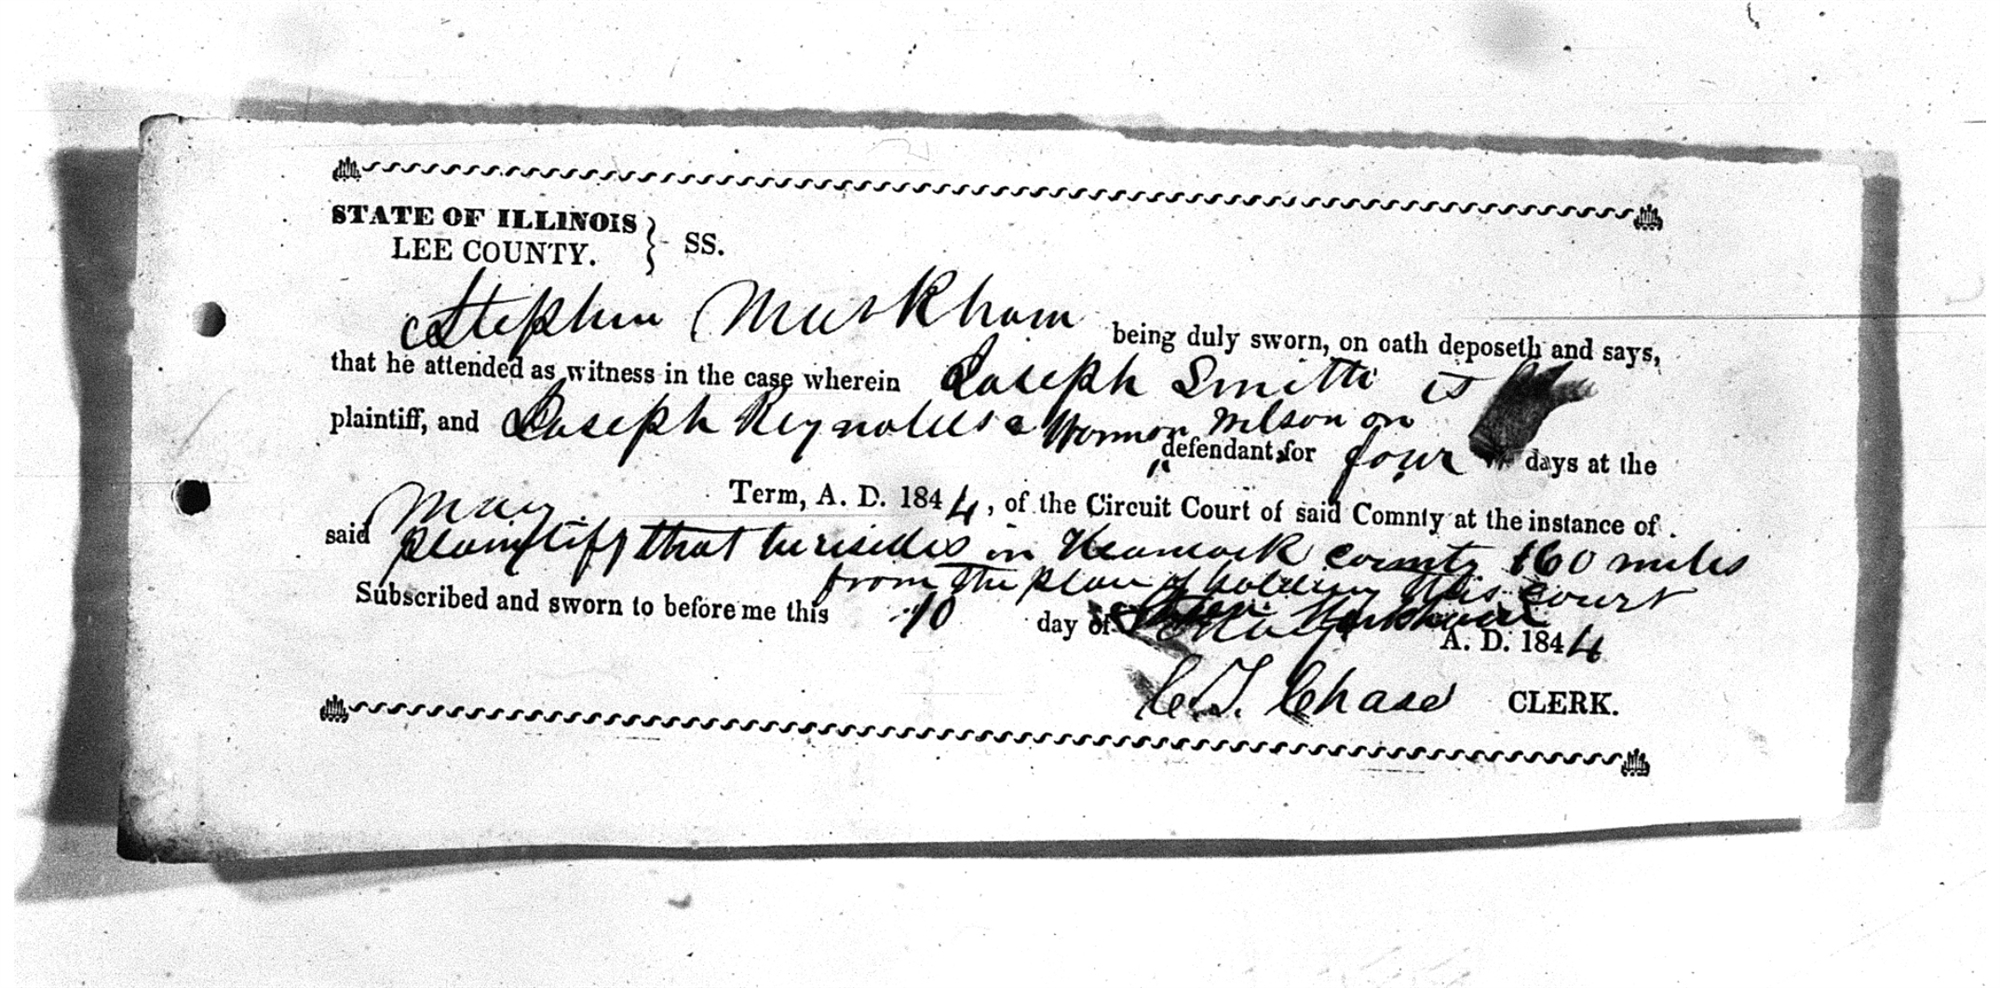 STATE OF ILLINOIS
LEE COUNTY. } SS.
Stephen Markham being duly sworn, on oath deposeth and says,
that he attended as witness in the case wherein Joseph Smith is
plaintiff, and Joseph Reynolds & Harmon Wilson on
defendant, for four days at the
May Term, A. D. 1844, of the Circuit Court of said Comnty at the instance of
said plaintiff that he resides in Hancock county 160 miles
from the place of holding this court
Subscribed and sworn to before me this 10 day of May A. D. 1844
Markham
C. T. Chase CLERK.